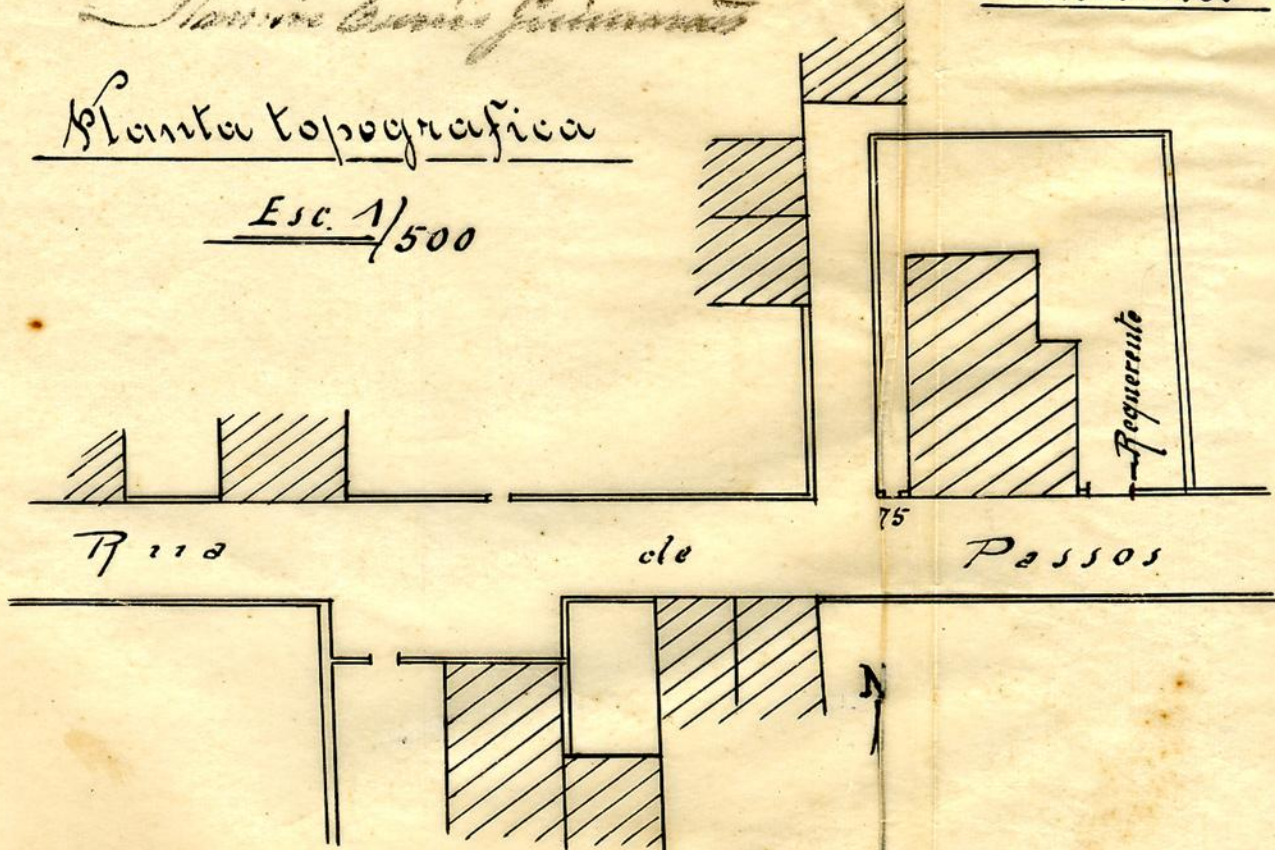 Planta topografica
Esc. 1/500
Requerente
75
Rua de Passos
N